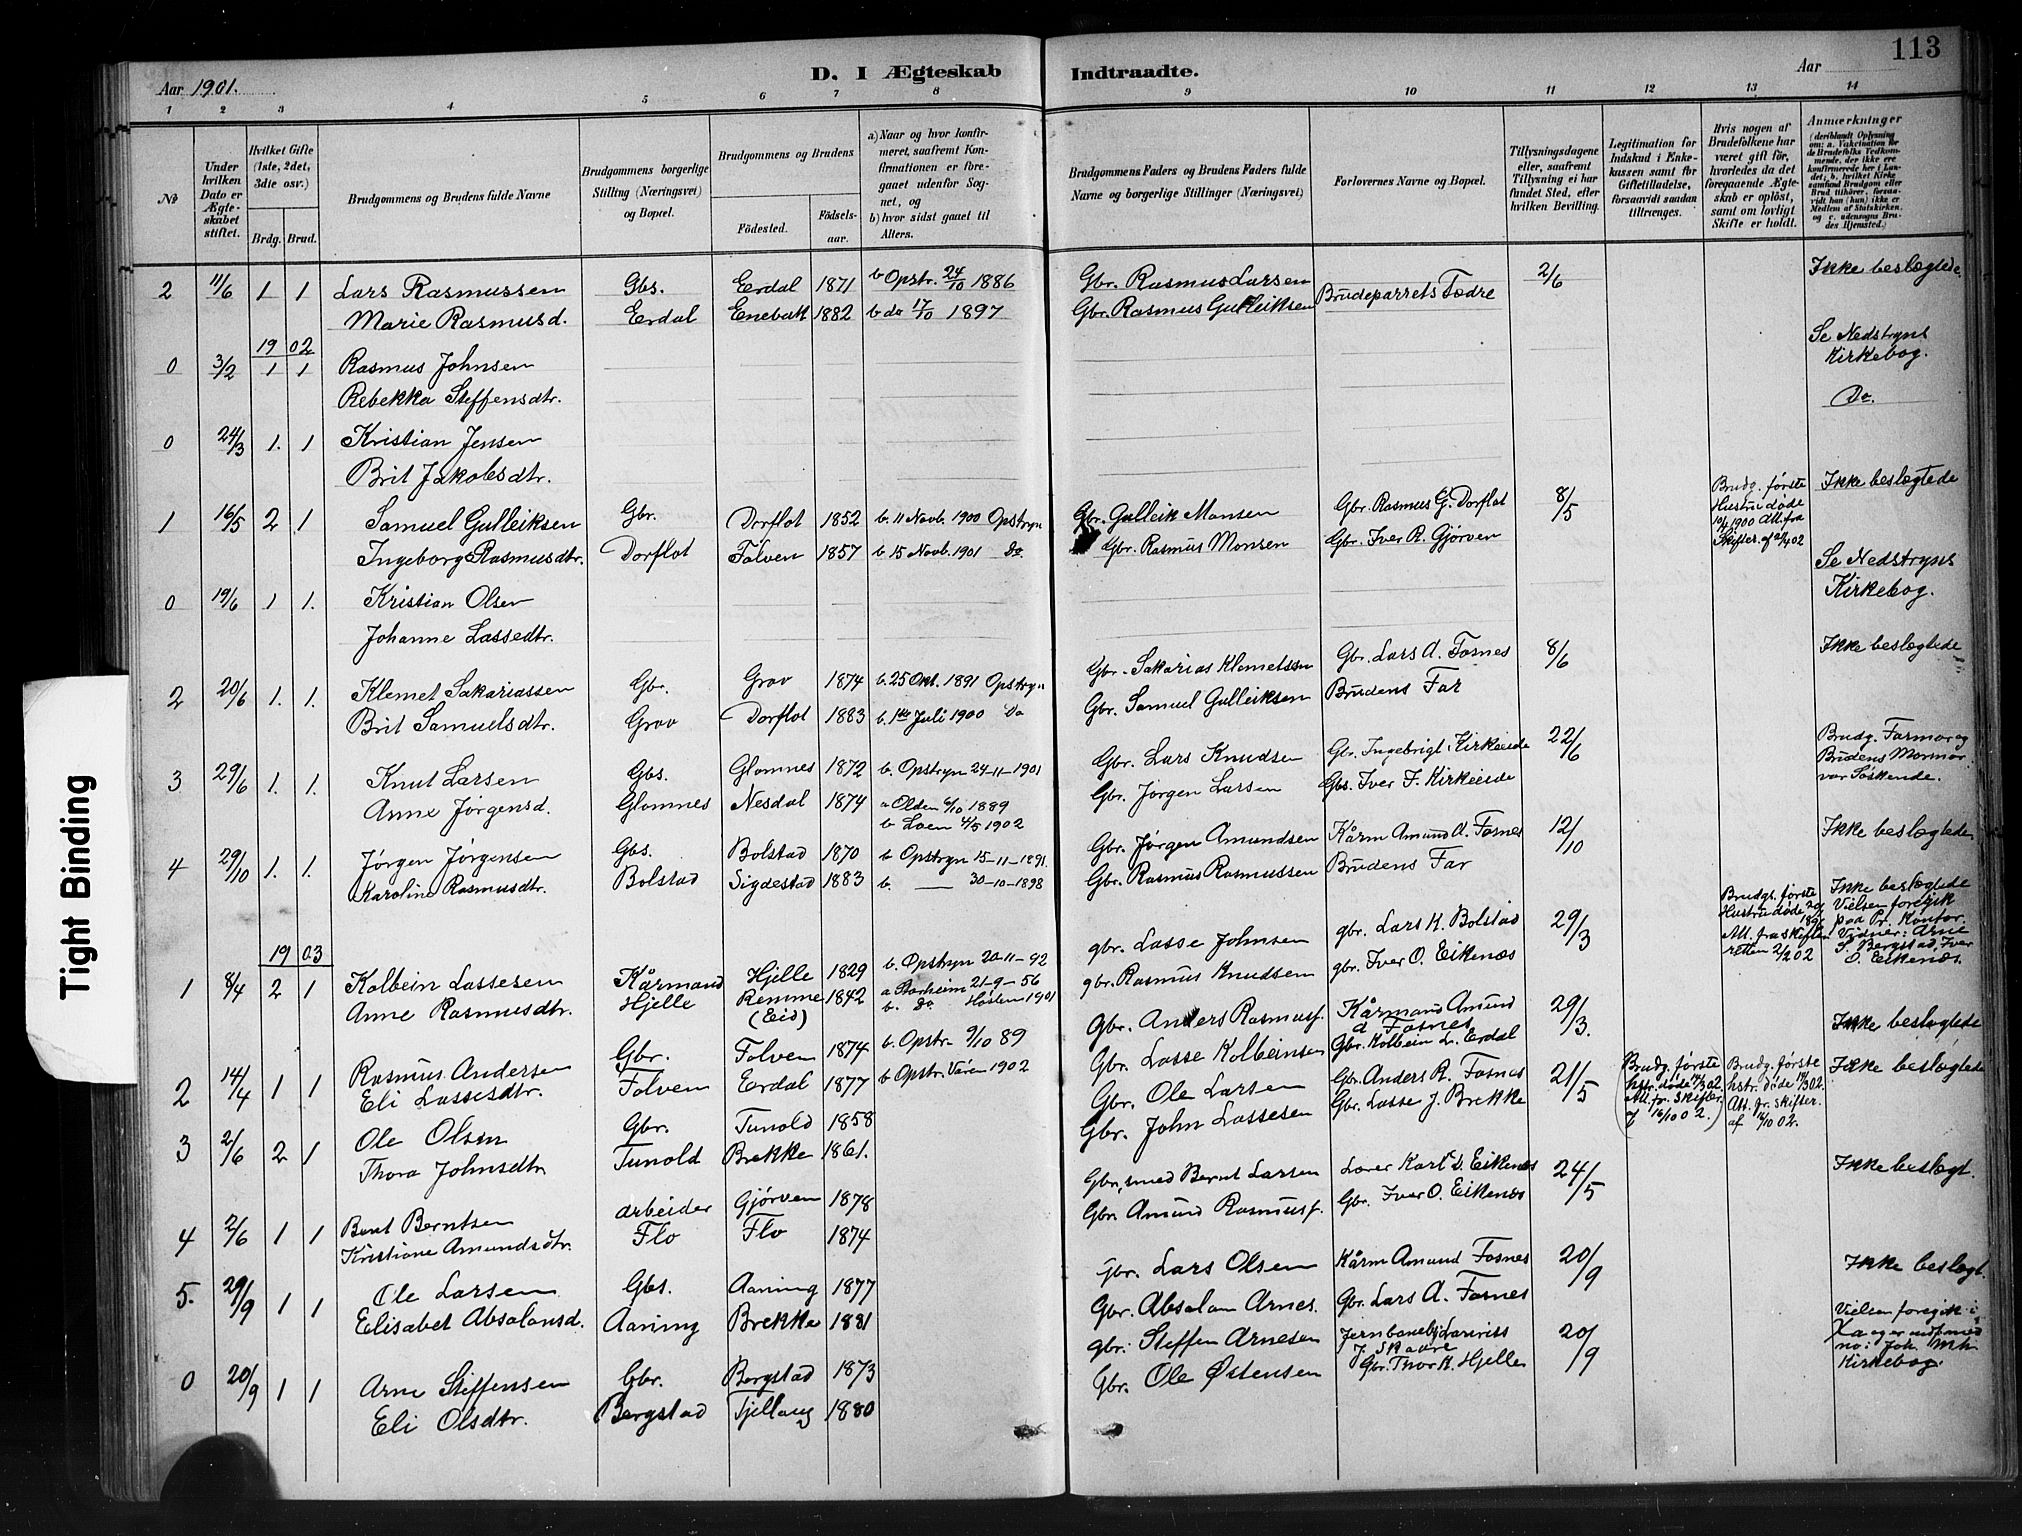 Aar 1901.
D. I Ægteskab Indtraadte.
Aar
113
1 2 3 4 5 6 7 8 9 10 11 12 13 14
№
Under hvilken Dato er Ægteskabet stiftet.
Hvilket Gifte (1ste, 2det, 3die osv.)
Brdg. Brud.
Brudgommens og Brudens fulde Navne
Brudgommens borgerlige Stilling (Næringsvei) og Bopæl.
Brudgommens og Brudens
Födested.
Födsels-aar.
a) Naar og hvor konfirmeret, saafremt Konfirmationen er foregaaet udenfor Sognet, og
b) hvor sidst gaaet til Alters.
Brudgommens Faders og Brudens Faders fulde Navne og borgerlige Stillinger (Næringsvei)
Forlovernes Navne og Bopæl.
Tillysningsdagene eller, saafremt Tillysning ei har fundet Sted, efter hvilken Bevilling.
Legitimation for Indskud i Enkekassen samt for Giftetilladelse, forsaavidt saadan tiltrænges.
Hvis nogen af Brudefolkene har været gift för, hvorledes da det foregaaende Ægteskab er oplöst, samt om lovligt Skifte er holdt.
Anmærkninger
2 11/6 1 1 Lars Rasmussen Gbs. Erdal 1871 b Opstr. 24/10 1886 Gbr. Rasmus Larsen Brudeparrets Fædre 2/6 Ikke beslægtede.
Marie Rasmusd. Erdal Enebak 1882 b do 17/10 1897 Gbr. Rasmus Gulleiksen
1902
0 3/2 1 1 Rasmus Johnsen Se Nedstryns Kirkebog.
Rebekka Steffensdtr.
0 24/3 1. 1 Kristian Jensen Do.
Brit Jakobsdtr.
1 16/5 2 1 Samuel Gulleiksen Gbr. Dorflot 1852 b. 11 Novb. 1900 Opstryn Gbr. Gulleik Monsen Gbr. Rasmus G. Dorflot 8/5 Brudg. første Hustru døde 1900 Att. fra Skifter. af 02 Ikke beslægtede
Ingeborg Rasmusdtr. Dorflot Folven 1857 b 15 Novb. 1901 Do Gbr. Rasmus Monsen Gbr. Iver R. Gjörven
0 19/6 1 1. Kristian Olsen Se Nedstryns Kirkebog.
Johanne Lassedtr.
2 20/6 1. 1. Klemet Sakariassen Gbr. Grov 1874 b. 25 Okt. 1891 Opstryn Gbr. Sakarias Klemetssn Gbr. Lars A. Fosnes 8/6 Ikke beslægtede
Brit Samuelsdtr. Grov Dorflot 1883 b. 1ste Juli 1900 Do Gbr. Samuel Gulleiksen Brudens Far
3 29/6 1. 1. Knut Larsen Gbs. Glomnes 1872 b. Opstryn 24-11-1901 Gbr. Lars Knudsen Gbr. Ingebrigt Kirkeide 22/6 Brudg. Farmor og Brudens Mormor var Søskende.
Anne Jørgensd. Glomnes Nesdal 1874 a Olden 6/10 1889 Gbr. Jørgen Larsen Gbs. Iver F. Kirkeide
b Loen 4/5 1902
4 29/10 1. 1. Jørgen Jørgensen Gbs. Bolstad 1870 b Opstryn 15-11-1891 Gbr. Jørgen Amundsen Kårm Amund A. Fosnes 12/10 Ikke beslægtede
Karoline Rasmusdtr. Bolstad Sigdestad 1883 b. — 30-10-1898 Gbr. Rasmus Rasmussen Brudens Far
1903
1 8/4 2 1 Kolbein Lassesen Kårmand Hjelle 1829 b. Opstryn 20-11-92 gbr. Lasse Johnsen gbr. Lars K. Bolstad 29/3 Brudgs. første Hustru døde Att. fra Skifteretten 02 Ikke beslægtede Vielsen foregik paa Pr. Kontor. Vidner: Arne S. Bergstad, Iver O. Eikenæs.
Anne Rasmusdtr. Hjelle Remme (Eid) 1842 a Starheim 21-9-56 gbr. Rasmus Knudsen gbr. Iver O. Eikenæs
b. Do Høsten 1901
2 14/4 1 1 Rasmus Andersen Gbr. Folven 1874 b. Opstr. 9/10 89 Gbr. Anders Rasmusf. Kårmand Amund A Fosnes 29/3. Ikke beslægtede
Eli Lassesdtr. Folven Erdal 1877 b Opstr. Våren 1902 Gbr. Lasse Kolbeinsen Gbr. Kolbein L. Erdal
3 2/6 2 1 Ole Olsen Gbr. Tunold 1858 Gbr. Ole Larsen Gbr. Anders R. Fosnes 21/5 (Brudg. første hstr. døde 14/3 02. Att. fr. Skifter. af 16/10 02.) Brudg. første hstr. døde 14/3 02. Att. fr. Skifter. af 16/10 02. Ikke beslægtede
Thora Johnsdtr Tunold Brekke 1861. Gbr. John Lassesen Gbr. Lasse J. Brekke
4 2/6 1 1 Bernt Berntsen arbeider Gjörven 1878 Gbr, smed Bernt Larsen Lærer Karl D. Eikenæs 24/5 Ikke beslægt.
Kristiane Amundsdtr. Flo Flo 1874 Gbr. Amund Rasmusf. Gbr. Iver O. Eikenæs
5. 29/9 1 1 Ole Larsen Gbs. Aaning 1877 Gbr. Lars Olsen Kårm Amund Fosnes 20/9 Ikke beslægt.
Elisabet Absalonsd. Aaning Brekke 1881 Gbr. Absalon Arnes. Gbr. Lars A. Fosnes
0 20/9 1 1 Arne Steffensen Gbr. Bergstad 1873 gbr. Steffen Arnesen J. Skaare 20/9 Vielsen foregik i Xa og er indf. med no i Joh. Kirkebog.
Eli Olsdtr. Bergstad Tjellaug 1880 Gbr. Ole Østensen Gbr. Thor K. Hjelle
Tight Binding